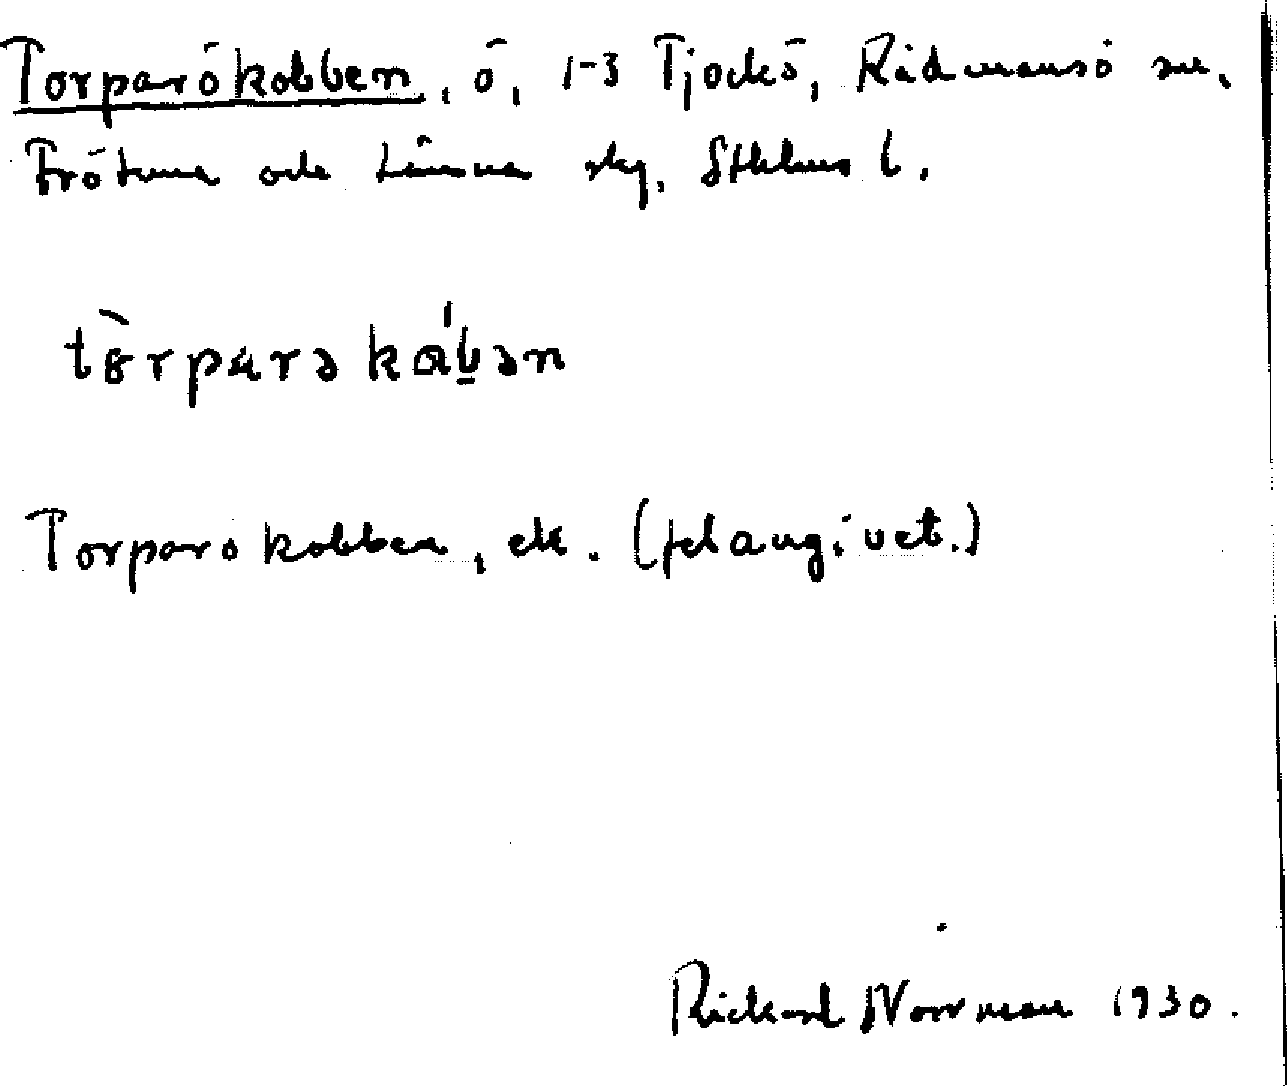 Torparökobben, ö, 1-3 Tjockö, Rådmansö sn.
Frötuna och Länna skg, Sthlms l.
tòrparəkábən
Torparökobben, ek. (felangivet.)
Rickard Norrman 1930.